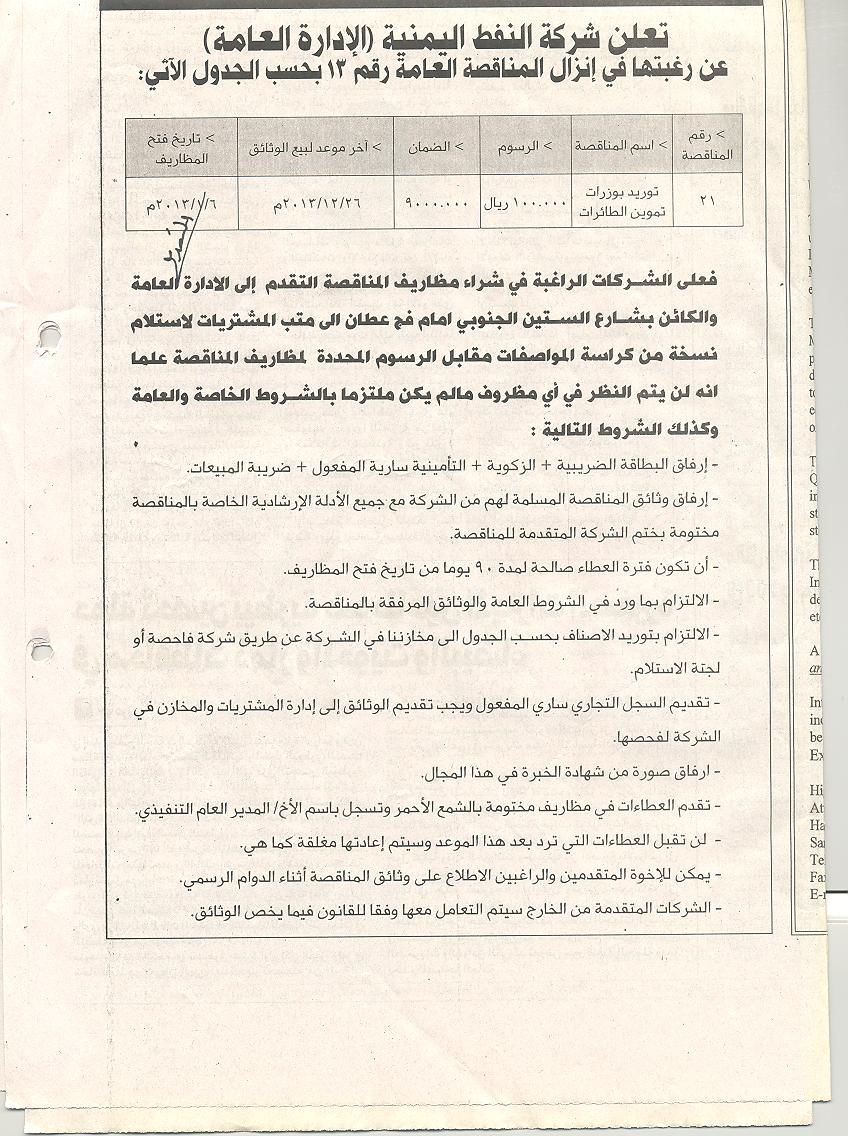 تعلن شركة النفط اليمنية (الإدارة العامة)
عن رغبتها في إنزال المناقصة العامة رقم ١٣ بحسب الجدول الآتي:
> رقم المناقصة > اسم المناقصة > الرسوم > الضمان > آخر موعد لبيع الوثائق > تاريخ فتح المظاريف
٢١ توريد بوزرات تموين الطائرات ١٠٠.٠٠٠ ريال ٩٠٠٠.٠٠٠ ٢٠١٣/١٢/٢٦م ٢٠١٣/١/٦م
فعلى الشركات الراغبة في شراء مظاريف المناقصة التقدم إلى الادارة العامة
والكائن بشارع الستين الجنوبي امام فج عطان الى متب المشتريات لاستلام
نسخة من كراسة المواصفات مقابل الرسوم المحددة لمظاريف المناقصة علما
انه لن يتم النظر في أي مظروف مالم يكن ملتزما بالشروط الخاصة والعامة
وكذلك الشروط التالية :
- إرفاق البطاقة الضريبية + الزكوية + التأمينية سارية المفعول + ضريبة المبيعات.
- إرفاق وثائق المناقصة المسلمة لهم من الشركة مع جميع الأدلة الإرشادية الخاصة بالمناقصة
مختومة بختم الشركة المتقدمة للمناقصة.
- أن تكون فترة العطاء صالحة لمدة ٩٠ يوما من تاريخ فتح المظاريف.
- الالتزام بما ورد في الشروط العامة والوثائق المرفقة بالمناقصة.
- الالتزام بتوريد الاصناف بحسب الجدول الى مخازننا في الشركة عن طريق شركة فاحصة أو
لجتة الاستلام.
- تقديم السجل التجاري ساري المفعول ويجب تقديم الوثائق إلى إدارة المشتريات والمخازن في
الشركة لفحصها.
- ارفاق صورة من شهادة الخبرة في هذا المجال.
- تقدم العطاءات في مظاريف مختومة بالشمع الأحمر وتسجل باسم الأخ/ المدير العام التنفيذي.
- لن تقبل العطاءات التي ترد بعد هذا الموعد وسيتم إعادتها مغلقة كما هي.
- يمكن للإخوة المتقدمين والراغبين الاطلاع على وثائق المناقصة أثناء الدوام الرسمي.
- الشركات المتقدمة من الخارج سيتم التعامل معها وفقا للقانون فيما يخص الوثائق.